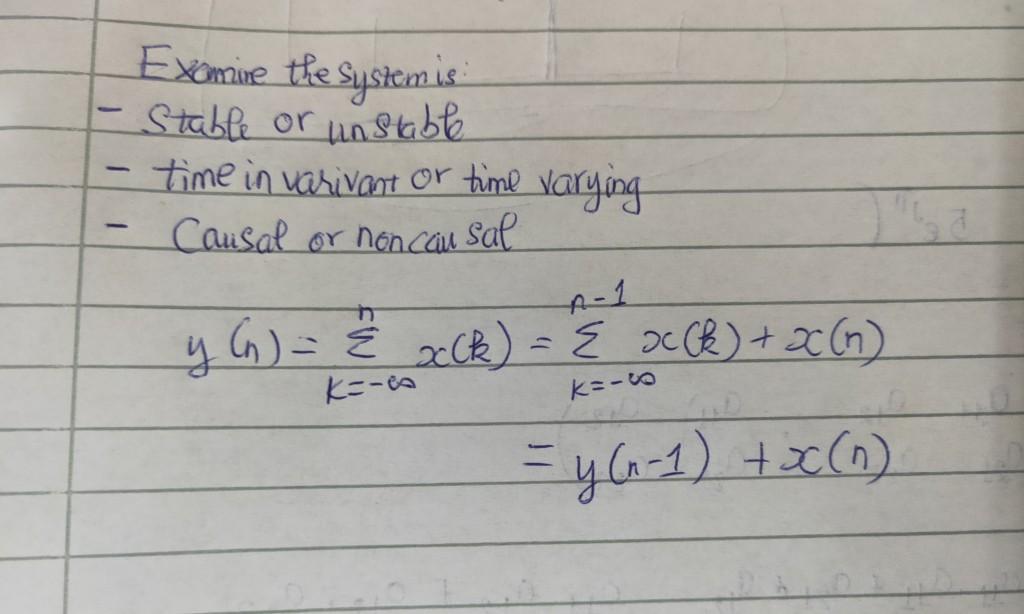 Examine the system is:
- Stable or unstable
- time in varivant or time varying
- Causal or noncausal
y(n) = Σ_{k=-∞}^{n} x(k) = Σ_{k=-∞}^{n-1} x(k) + x(n)
= y(n-1) + x(n)